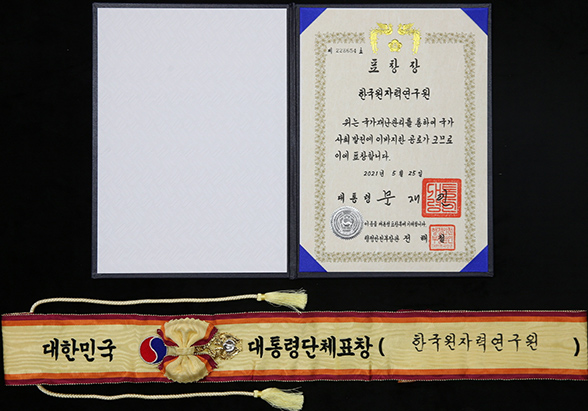 제 222654 호
표 창 장
한국원자력연구원
위는 국가재난관리를 통하여 국가
사회 발전에 이바지한 공로가 크므로
이에 표창합니다.
2021년 5월 25일
대통령 문 재 인
이 증을 대통령 표창부에 기재합니다
행정안전부장관 전 해 철
대한민국 대통령단체표창 ( 한국원자력연구원 )